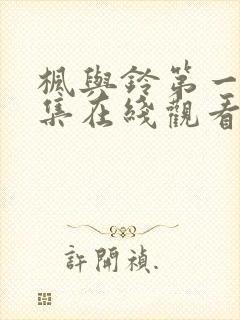 楓與鈴第一
集在綫觀看
許開禎.